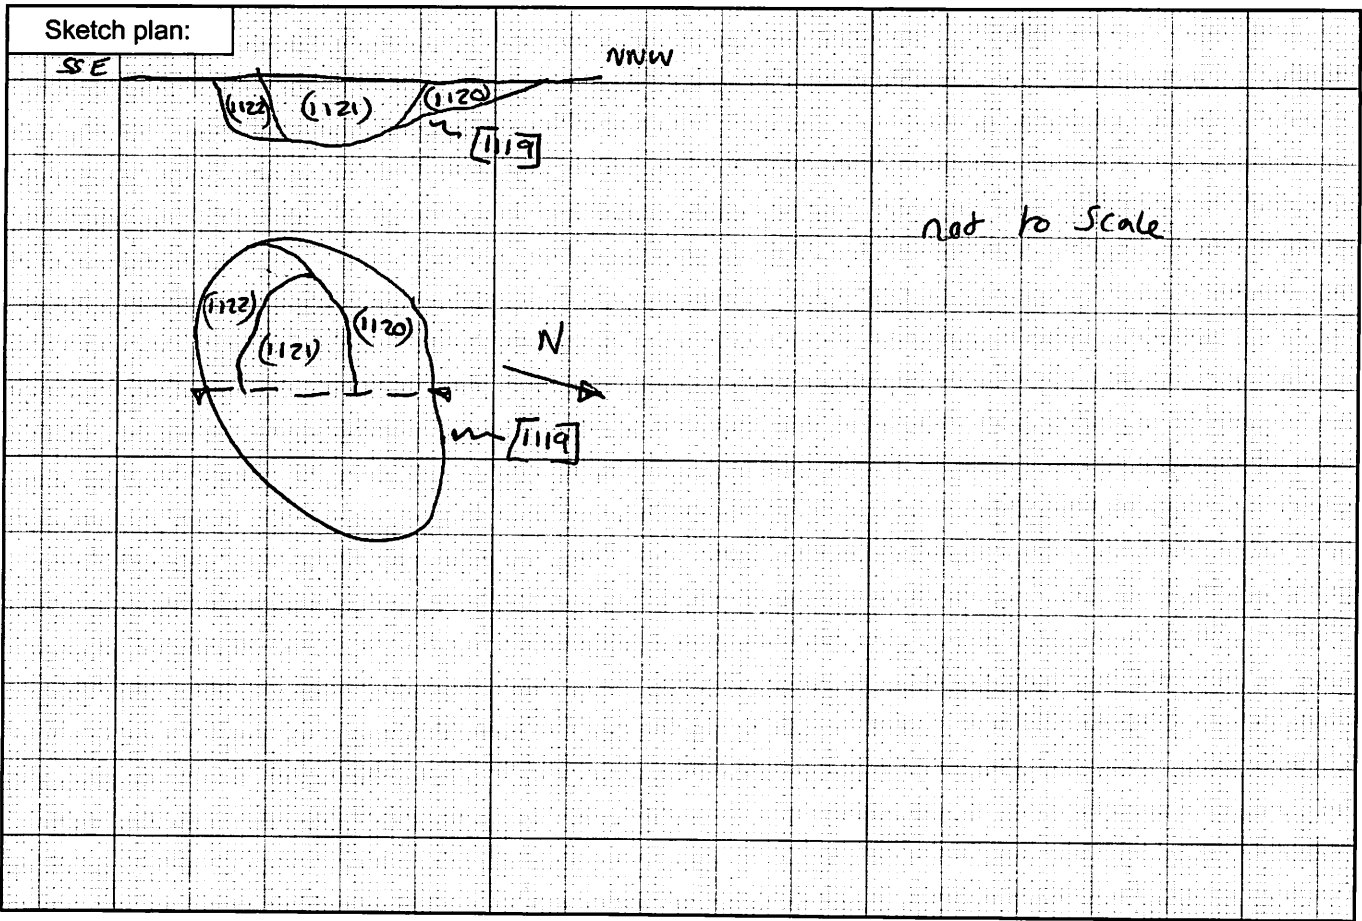 Sketch plan:
SSE
NNW
(1122)
(1121)
(1120)
[1119]
not to Scale
(1122)
(1120)
(1121)
N
[1119]